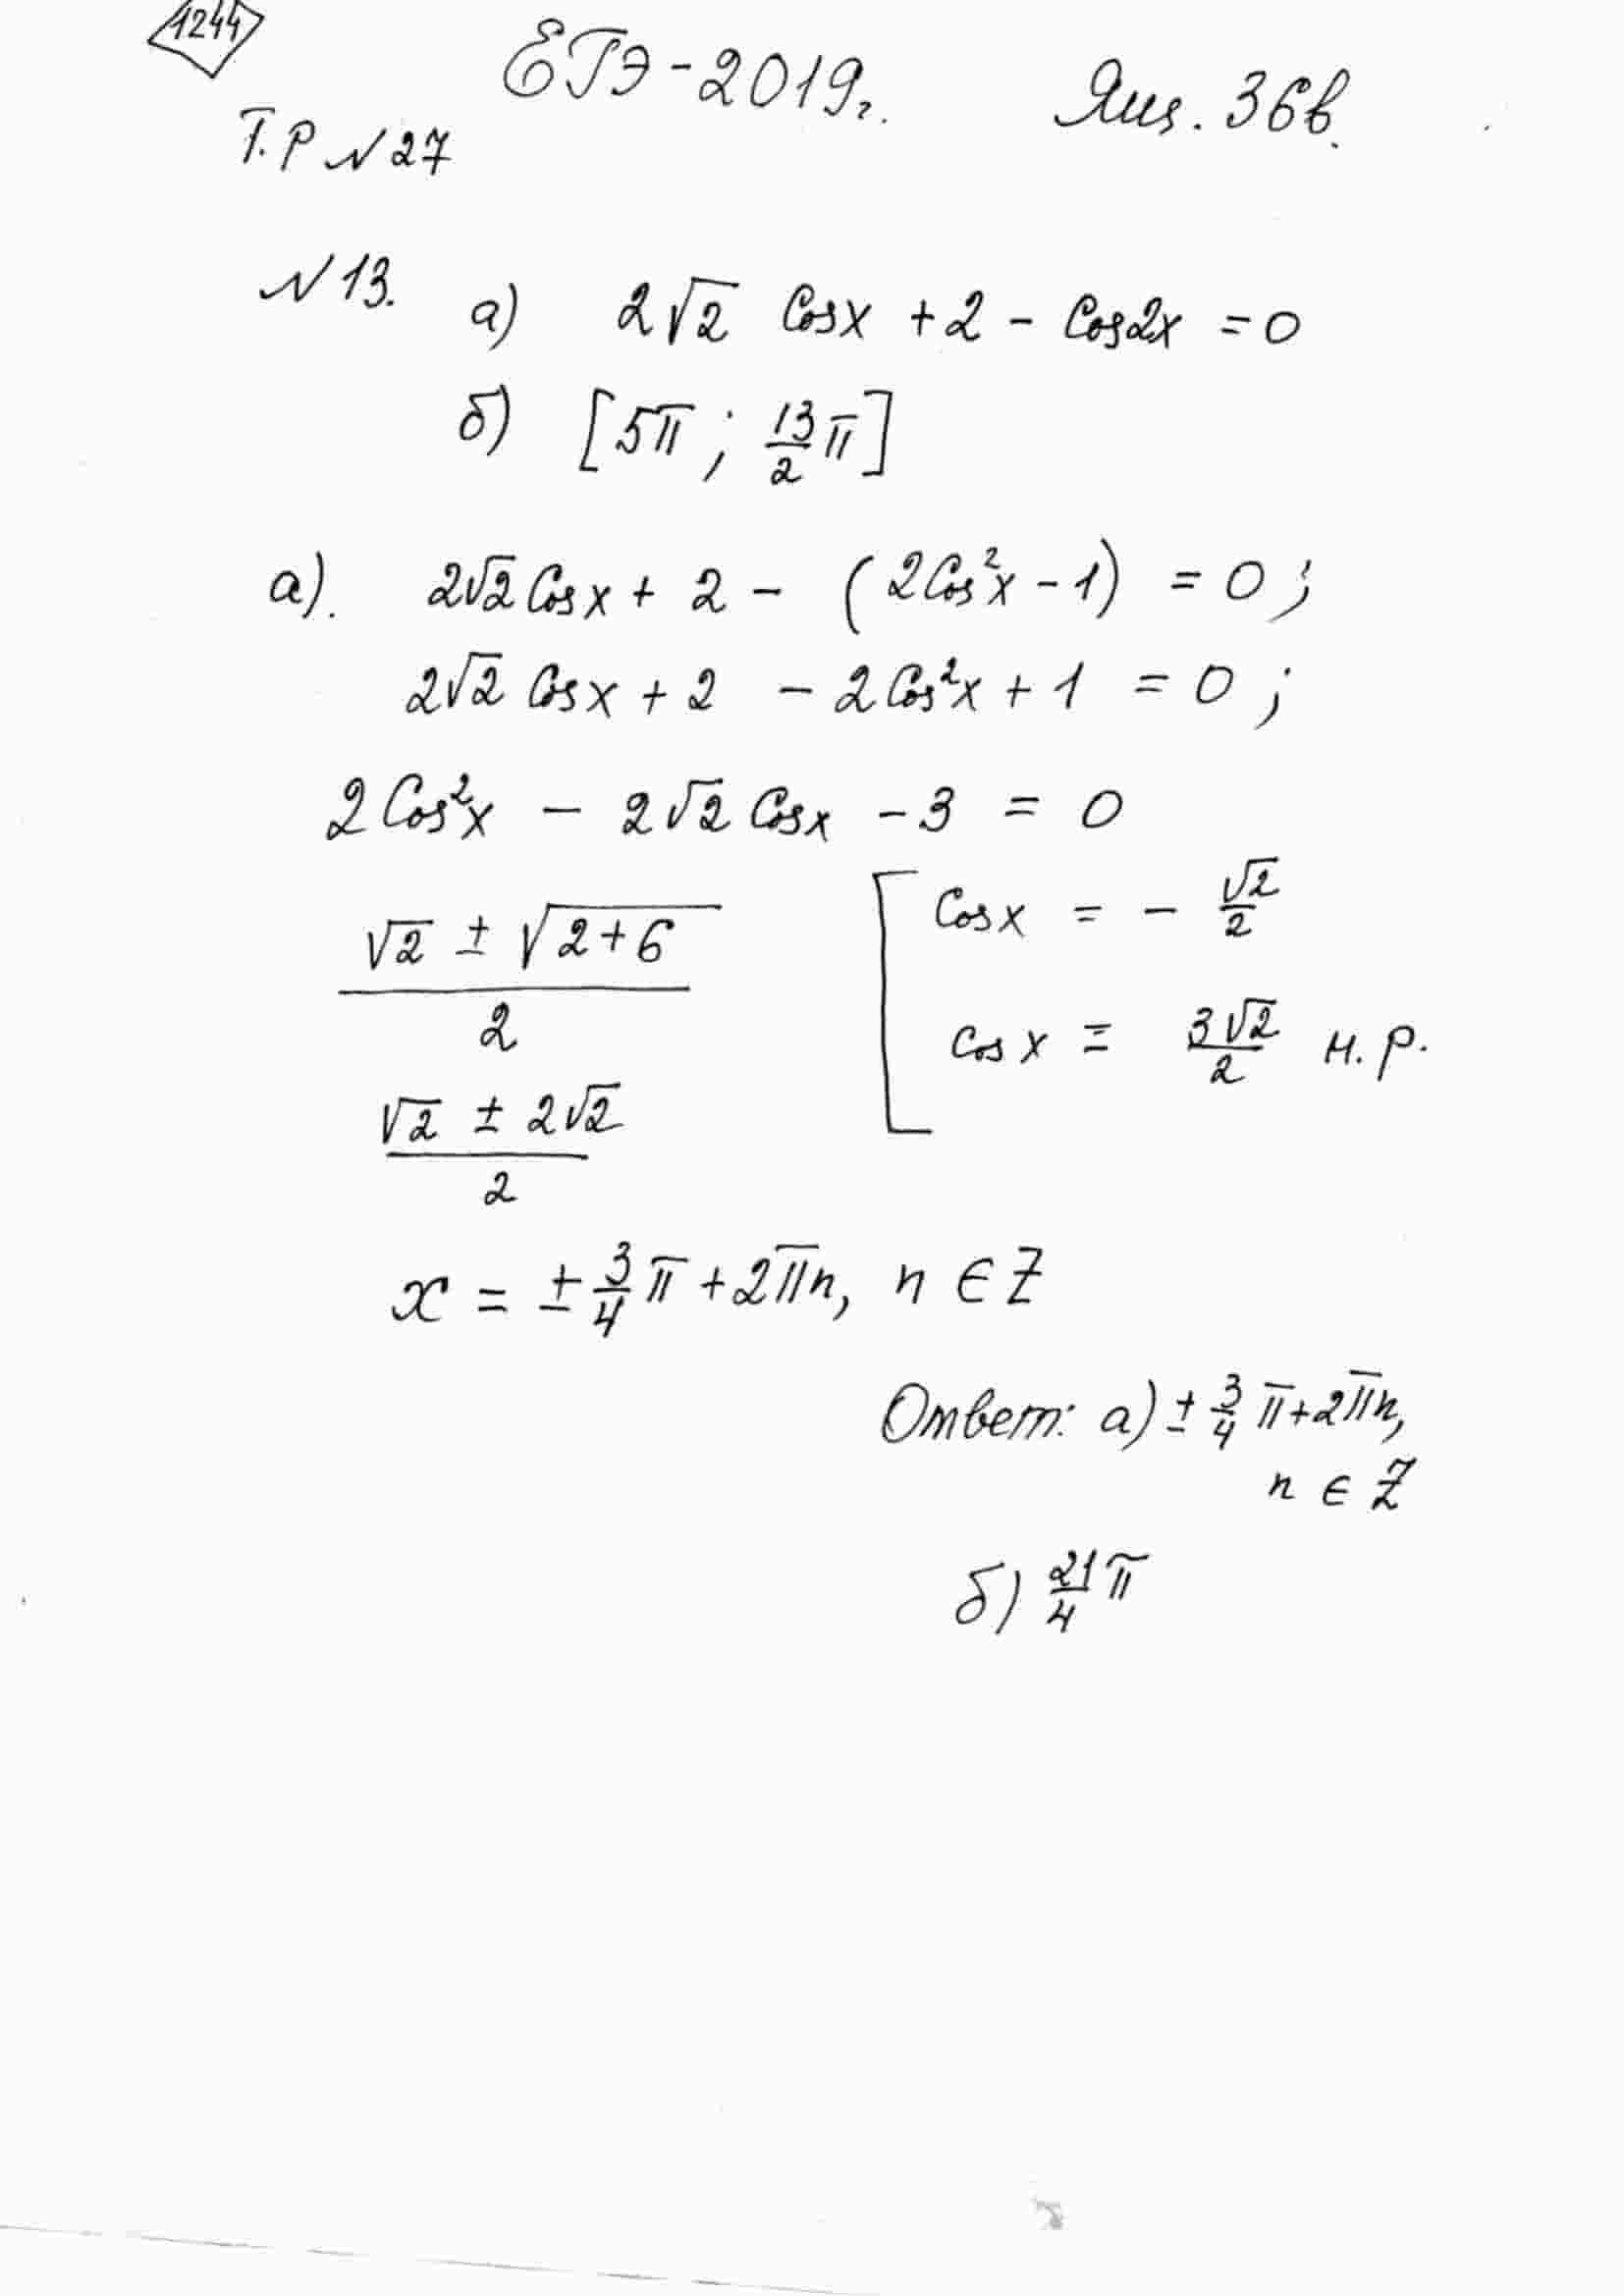 1244
ЕГЭ-2019г. Ящ. 36в.
Т.Р №27
№13. а) 2√2 Cosx + 2 - Cos2x = 0
б) [5π ; 13/2 π]
а). 2√2 Cosx + 2 - (2Cos²x - 1) = 0 ;
2√2 Cosx + 2 - 2Cos²x + 1 = 0 ;
2Cos²x - 2√2 Cosx - 3 = 0
(√2 ± √(2+6))/2
(√2 ± 2√2)/2
[ Cosx = - √2/2
Cosx = 3√2/2 н.р.
x = ± 3/4 π + 2πn, n ∈ Z
Ответ: а) ± 3/4 π + 2πn,
n ∈ Z
б) 21/4 π